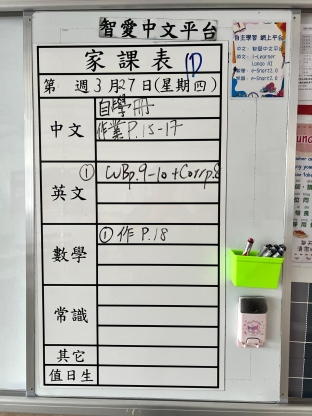 智愛中文平台
家課表 1D
第 週3月27日(星期四)
中文
自學冊
作業P.15-17
英文
① WBp.9-10+Corrp.8
數學
① 作 P.18
常識
其它
值日生
自主學習 網上平台
中文: 智愛中文平台
英文: i-Learner
Longo AI
數學: e-Smart2.0
常識: e-Smart2.0